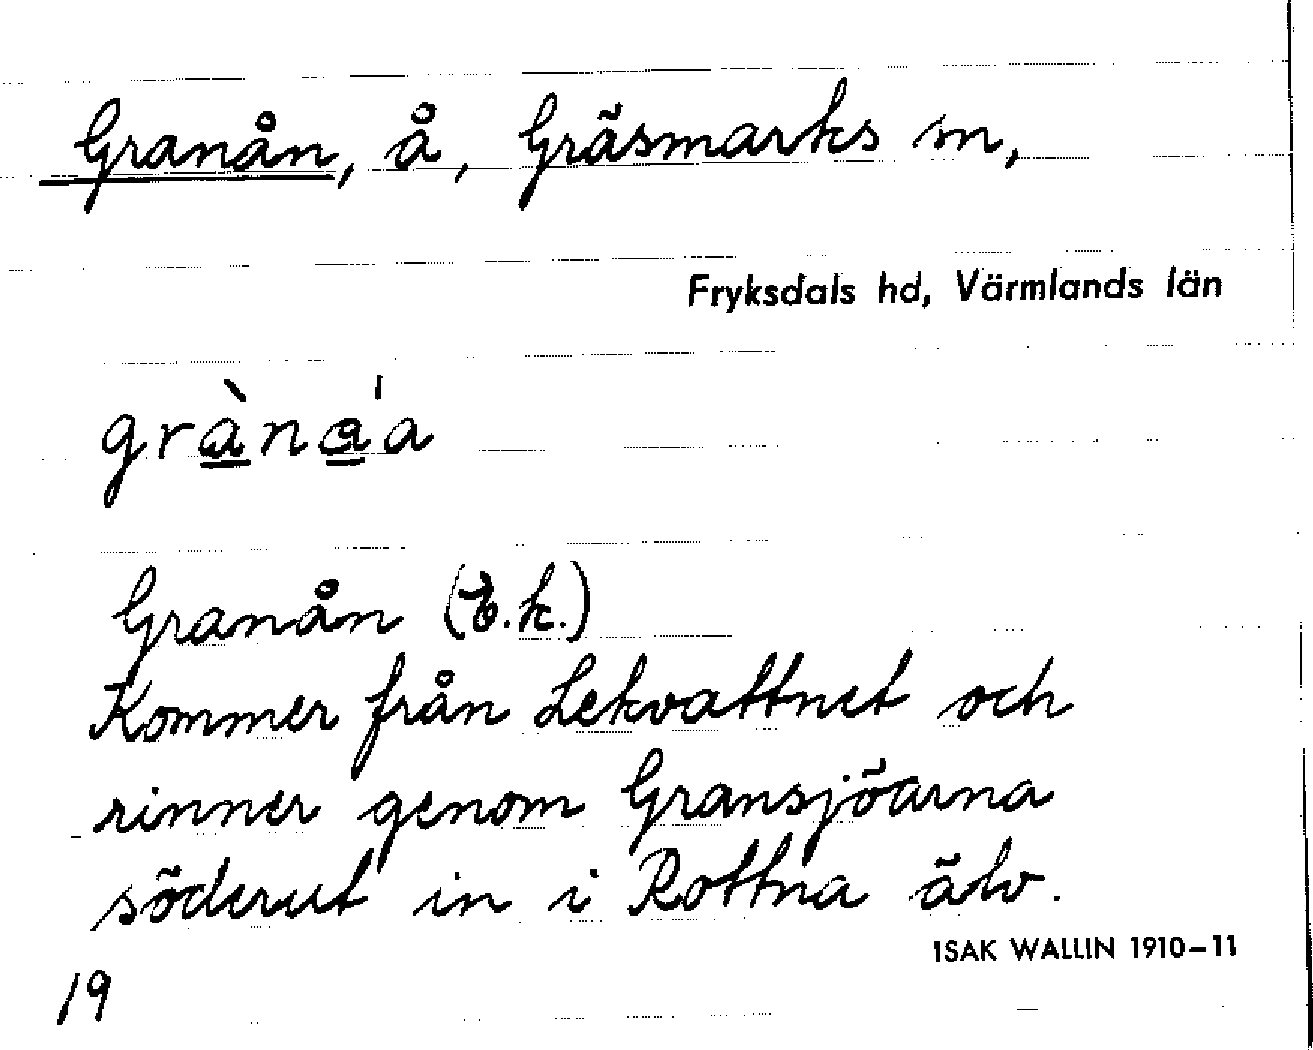 Granån, å, Gräsmarks sn,
Fryksdals hd, Värmlands län
Granån (E.k.)
Kommer från Lekvattnet och
rinner genom Gransjöarna
söderut in i Rottna älv.
ISAK WALLIN 1910-11
19